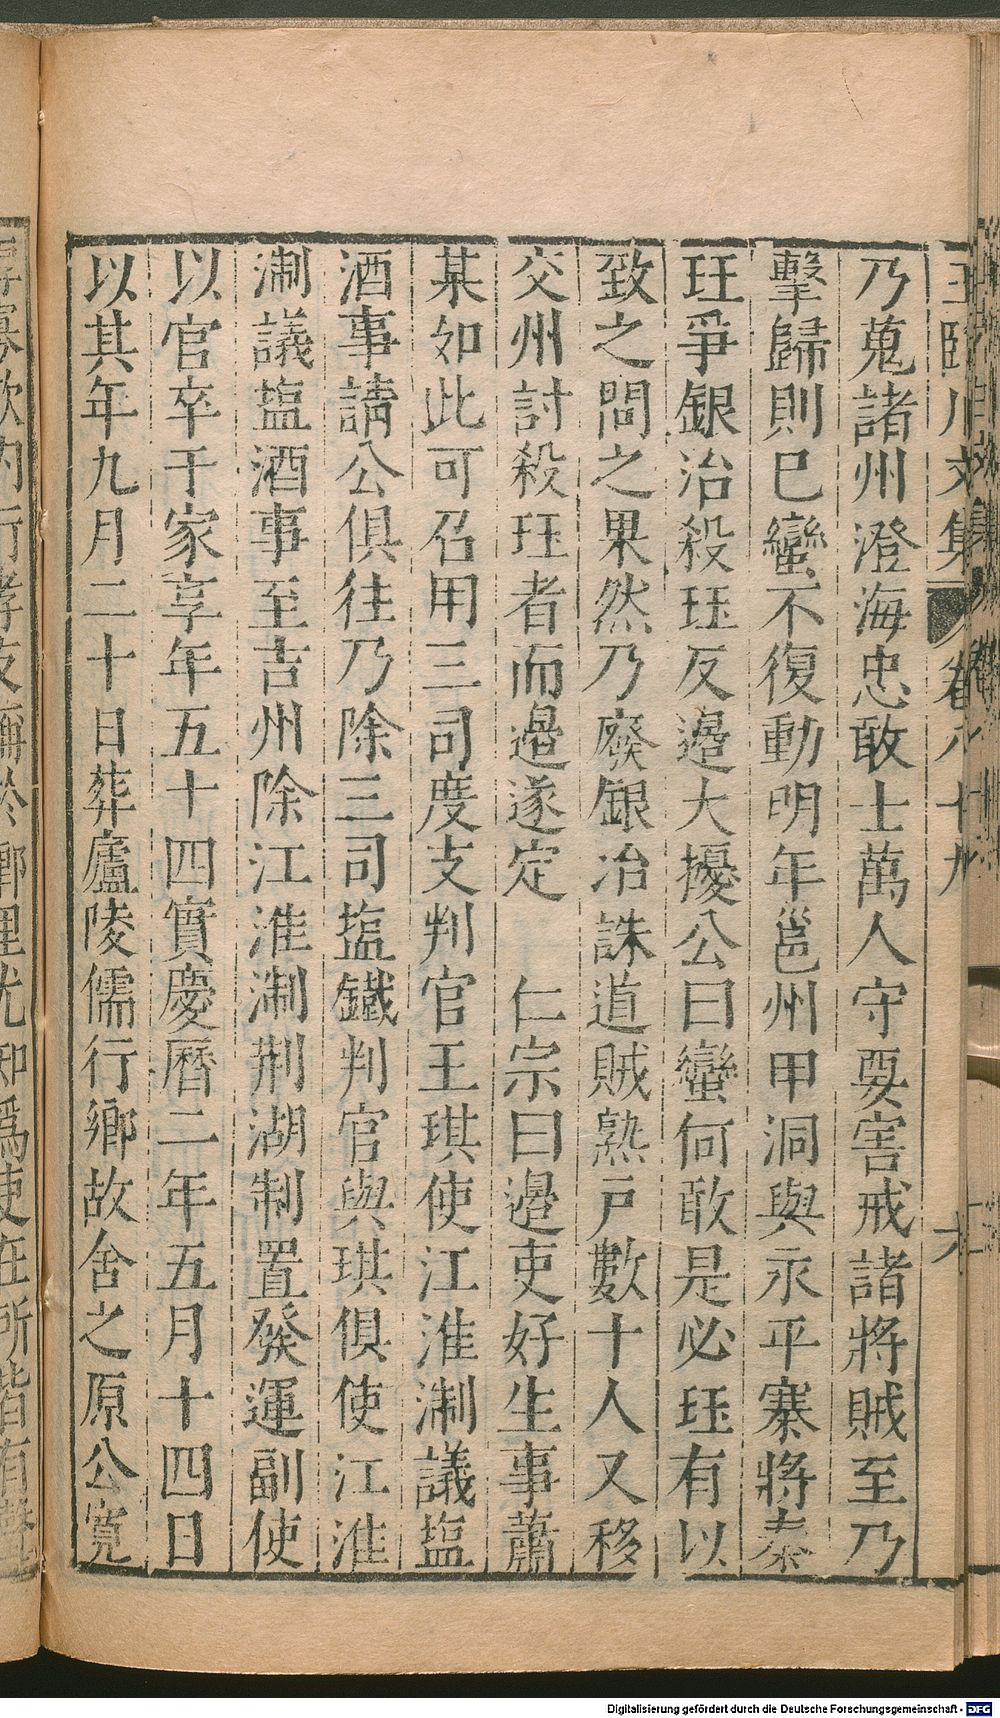 乃蒐諸州澄海忠敢士萬人守要害戒諸將賊至乃
擊歸則已蠻不復動明年邕州甲洞與永平寨將秦
珏爭銀冶殺珏反邊大擾公曰蠻何敢是必珏有以
致之問之果然乃廢銀冶誅道賊熟户數十人又移
交州討殺珏者而邊遂定　仁宗曰邊吏好生事蕭
某如此可召用三司度支判官王琪使江淮淛議塩
酒事請公俱往乃除三司塩鐵判官與琪俱使江淮
淛議塩酒事至吉州除江淮淛荆湖制置發運副使
以官卒于家享年五十四實慶曆二年五月十四日
以其年九月二十日葬廬陵儒行鄉故舍之原公寬
Digitalisierung gefördert durch die Deutsche Forschungsgemeinschaft - DFG